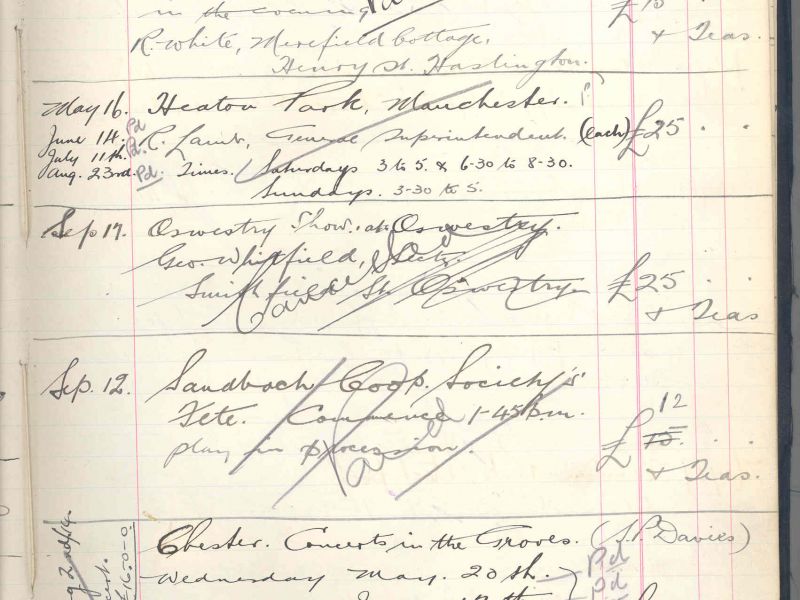 in the evening Pd £15
R. White, Merefield Cottage, & Teas.
Henry St. Haslington.
May 16. Heaton Park, Manchester.
June 14. Pd C. Lamb, General Superintendent. (each) £25 . .
July 11th. Pd.
Aug. 23rd. Pd. Times. Saturdays 3 to 5. & 6-30 to 8-30.
Sundays. 3-30 to 5.
Sep 17. Oswestry Show. at Oswestry.
Geo. Whitfield, Sect.
Smithfield St. Oswestry £25 . .
Cancelled & Teas
Sep. 12. Sandbach Coop. Society's
Fete. Commence 1-45 p.m. 12
play in procession. £ 15 . .
Cancelled & Teas.
Chester. Concerts in the Groves. (J.P. Davies)
Wednesday May. 20th. Pd
Pd
£16-0-0